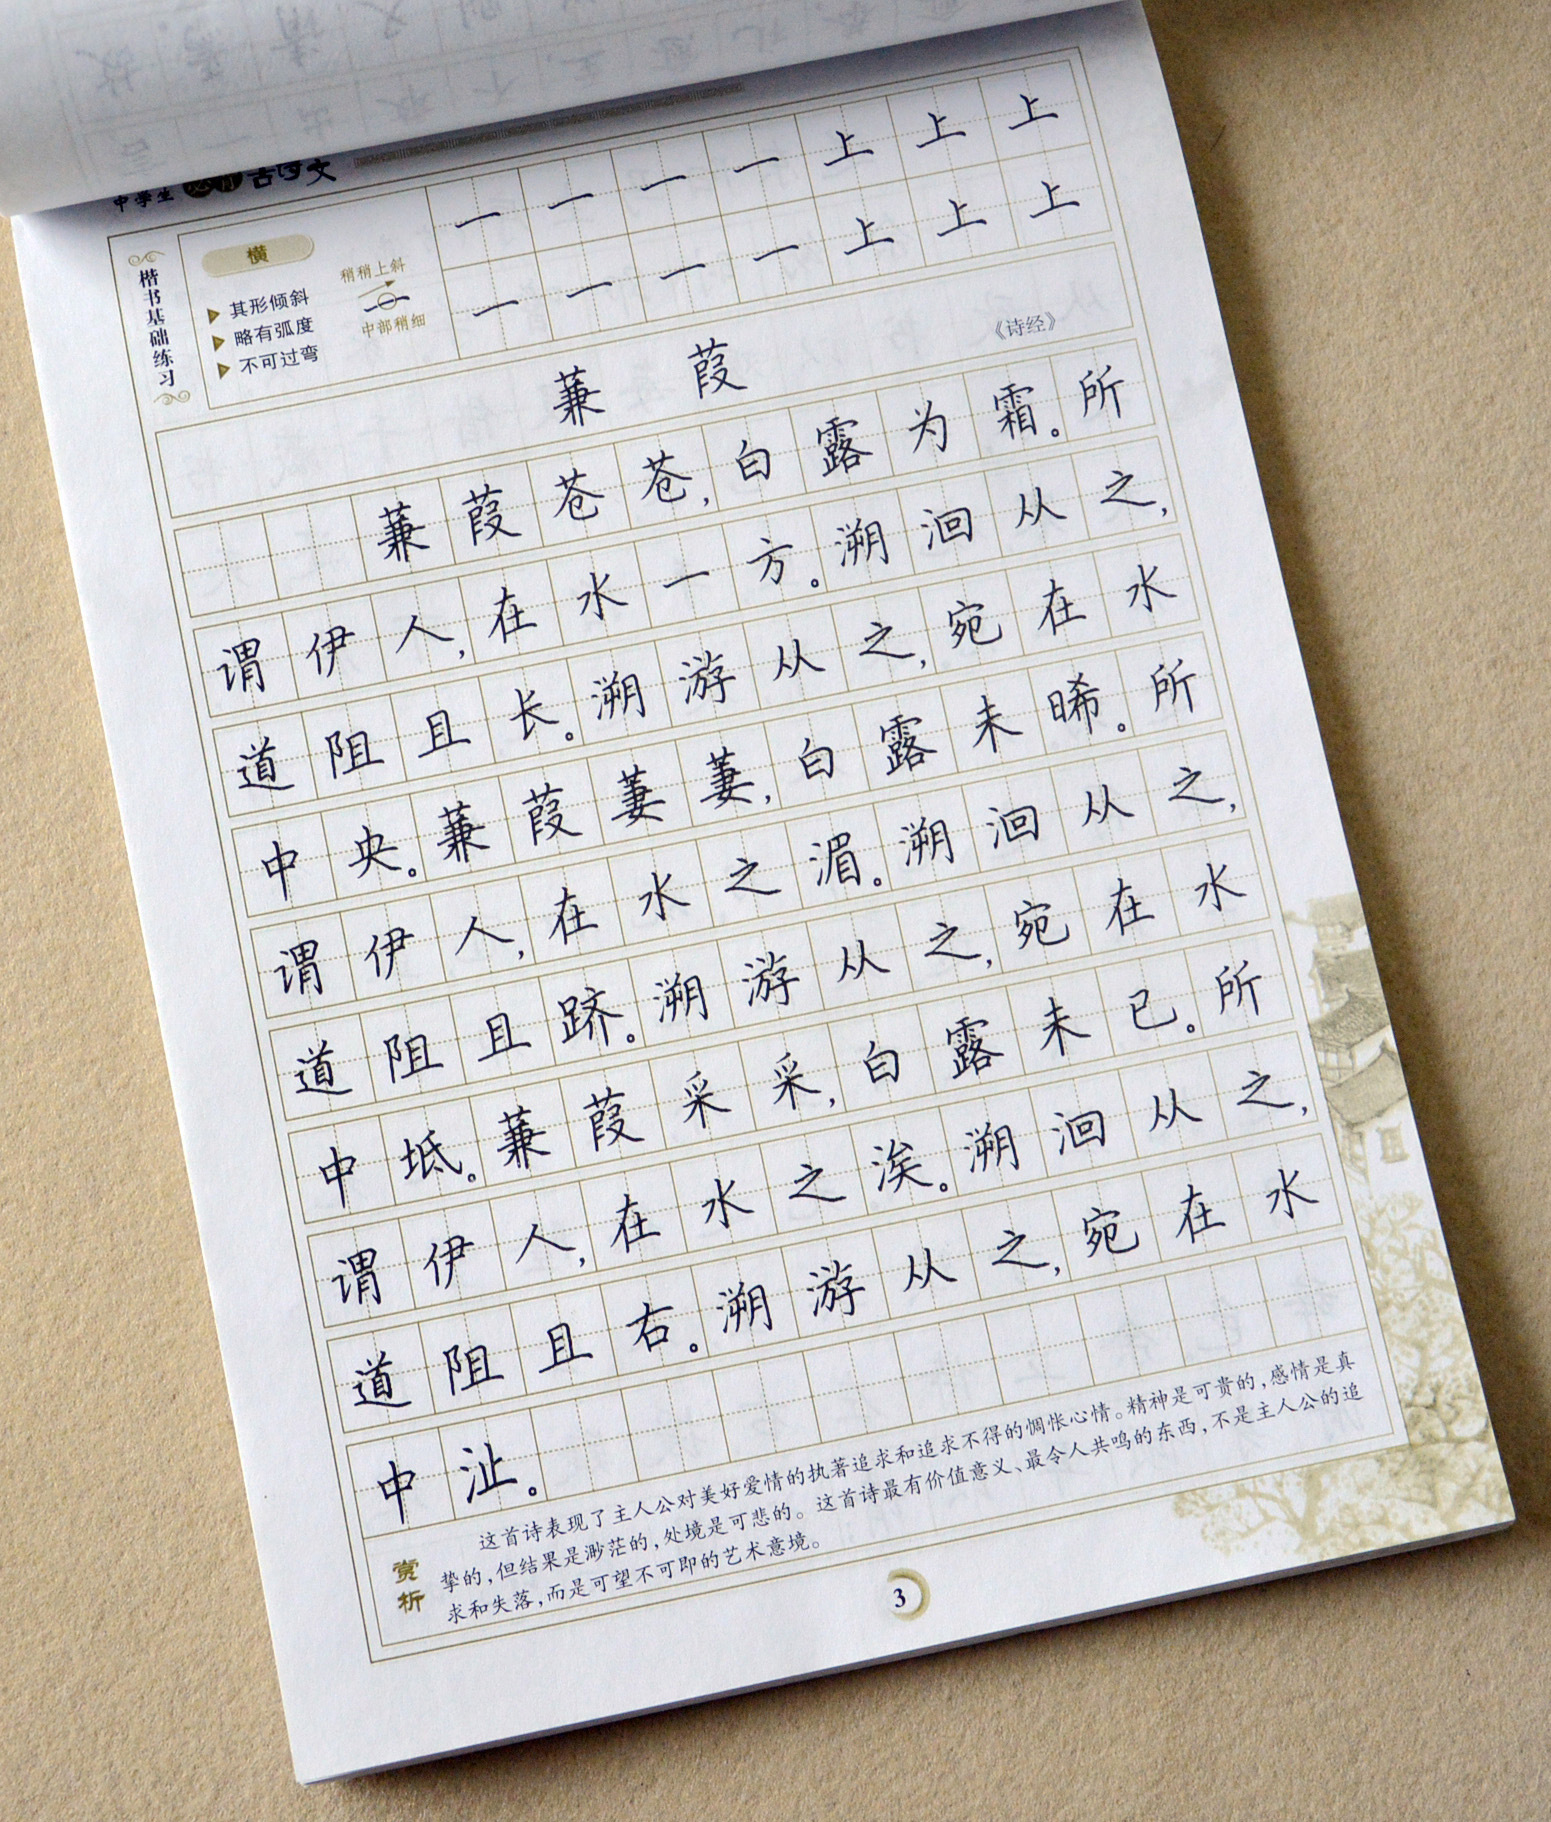 中学生必背古诗文
楷书基础练习
横
其形倾斜
略有弧度
不可过弯
稍稍上斜
中部稍细
一一一一上上上
一一一一上上上
蒹葭
《诗经》
蒹葭苍苍,白露为霜。所
谓伊人,在水一方。溯洄从之,
道阻且长。溯游从之,宛在水
中央。蒹葭萋萋,白露未晞。所
谓伊人,在水之湄。溯洄从之,
道阻且跻。溯游从之,宛在水
中坻。蒹葭采采,白露未已。所
谓伊人,在水之涘。溯洄从之,
道阻且右。溯游从之,宛在水
中沚。
赏析
这首诗表现了主人公对美好爱情的执著追求和追求不得的惆怅心情。精神是可贵的,感情是真
挚的,但结果是渺茫的,处境是可悲的。这首诗最有价值意义、最令人共鸣的东西,不是主人公的追
求和失落,而是可望不可即的艺术意境。
3